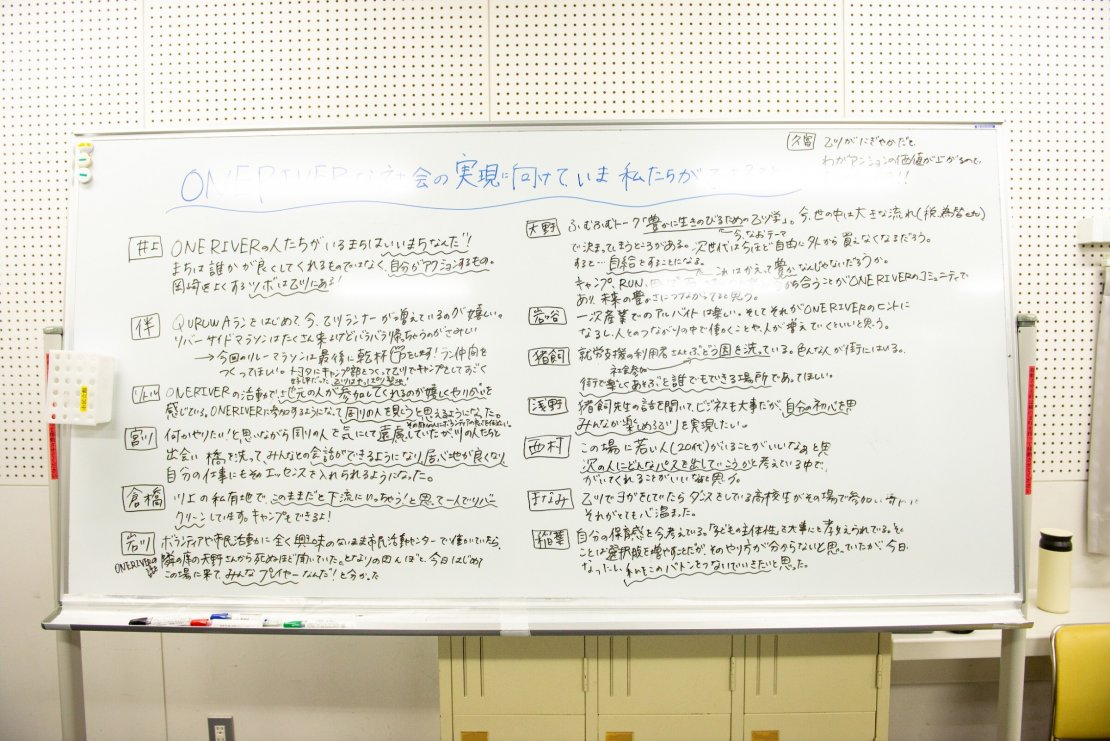 ONE RIVERな社会の実現に向けて、いま私たちが
久留 乙川がにぎやかだと
わがマンションの価値が上がるので、
井上 ONE RIVERの人たちがいるまちはいいまちなんだ!
まちは誰かが良くしてくれるものではなく、自分がアクションするもの。
岡崎をよくするツボは乙川にある!
伴 QURUWAランをはじめて、今、乙川ランナーが増えているのが嬉しい。
リバーサイドマラソンはたくさん来るけどバラバラ帰っちゃうのがさみしい
→今回のリレーマラソンは最後に乾杯します! ラン仲間を
つくってほしい。トヨタにキャンプ部をつくって乙川でキャンプとしてすごく
ONE RIVERの活動で地元の人が参加してくれるのが嬉しくやりがいを
感じている。ONE RIVERに参加するようになって周りの人を見ようと思えるようになった。
宮川 何かやりたい!と思いながら周りの人を気にして遠慮していたが、川の人たちと
出会い 橋を洗って、みんなとの会話ができるようになり、居心地が良くなり
自分の仕事にもそのエッセンスを入れられるようになった。
倉橋 川上の私有地で、このままだと下流にいっちゃう!と思って一人でリバー
クリーンしています。キャンプもできるよ!
岩川 ボランティアや市民活動に全く興味のないまま市民活動センターで働いていたら、
ONE RIVERの 隣の席の天野さんから死ぬほど聞いていた。となりの田んぼと、今日はじめて
この場に来て、みんなプレイヤーなんだ!と分かった
天野 ふむふむトーク「豊かに生きのびるための乙川学」。今、世の中は大きな流れ(税、為替etc)
で決まってしまうところがある。次世代は今ほど自由に外から買えなくなるだろう。
すると…自給をすることになる。これはかえって豊かなんじゃないだろうか。
キャンプ、RUN、 合うことがONE RIVERのコミュニティで
あり、未来の豊かさにつながってると思う。
岩谷 一次産業でのアルバイトは楽しい。そしてそれがONE RIVERのヒントに
なるし、人とのつながりの中で働くことや、人が増えていくといいと思う。
猪飼 就労支援の利用者さんとぶどう園を洗っている。色んな人が街にはいる。
社会参加
街で楽しくあそぶと誰もできる場所であってほしい。
浅野 猪飼先生の話を聞いて、ビジネスも大事だが、自分の初心を思
みんなが楽しめる乙川を実現したい。
西村 この場に若い人(20代)がいることがいいなぁと思
次の人にどんなパスを出していこうかと考えている中で、
がいてくれることがいいなぁと思う。
まなみ 乙川でヨガをしていたらダンスをしている高校生がその場で参加し
それがとても心温まった。
稲葉 自分の保育感を今考えている。「子どもの主体性」って大事にと考えられている。その
ことは選択肢を増やすことだが、そのやり方が分からないと思っていたが、今日、
なったし、私もこのバトンをつないでいきたいと思った。